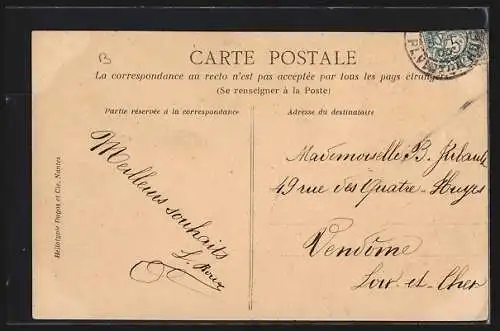 B
CARTE POSTALE
La correspondance au recto n'est pas acceptée par tous les pays étrangers
(Se renseigner à la Poste)
Partie réservée à la correspondance
Adresse du destinataire
Meilleurs souhaits
Mademoiselle B.
49 rue des Quatre-Huyes
Vendôme
Loir-et-Cher
Héliotypie Dugas et Cie, Nantes
5